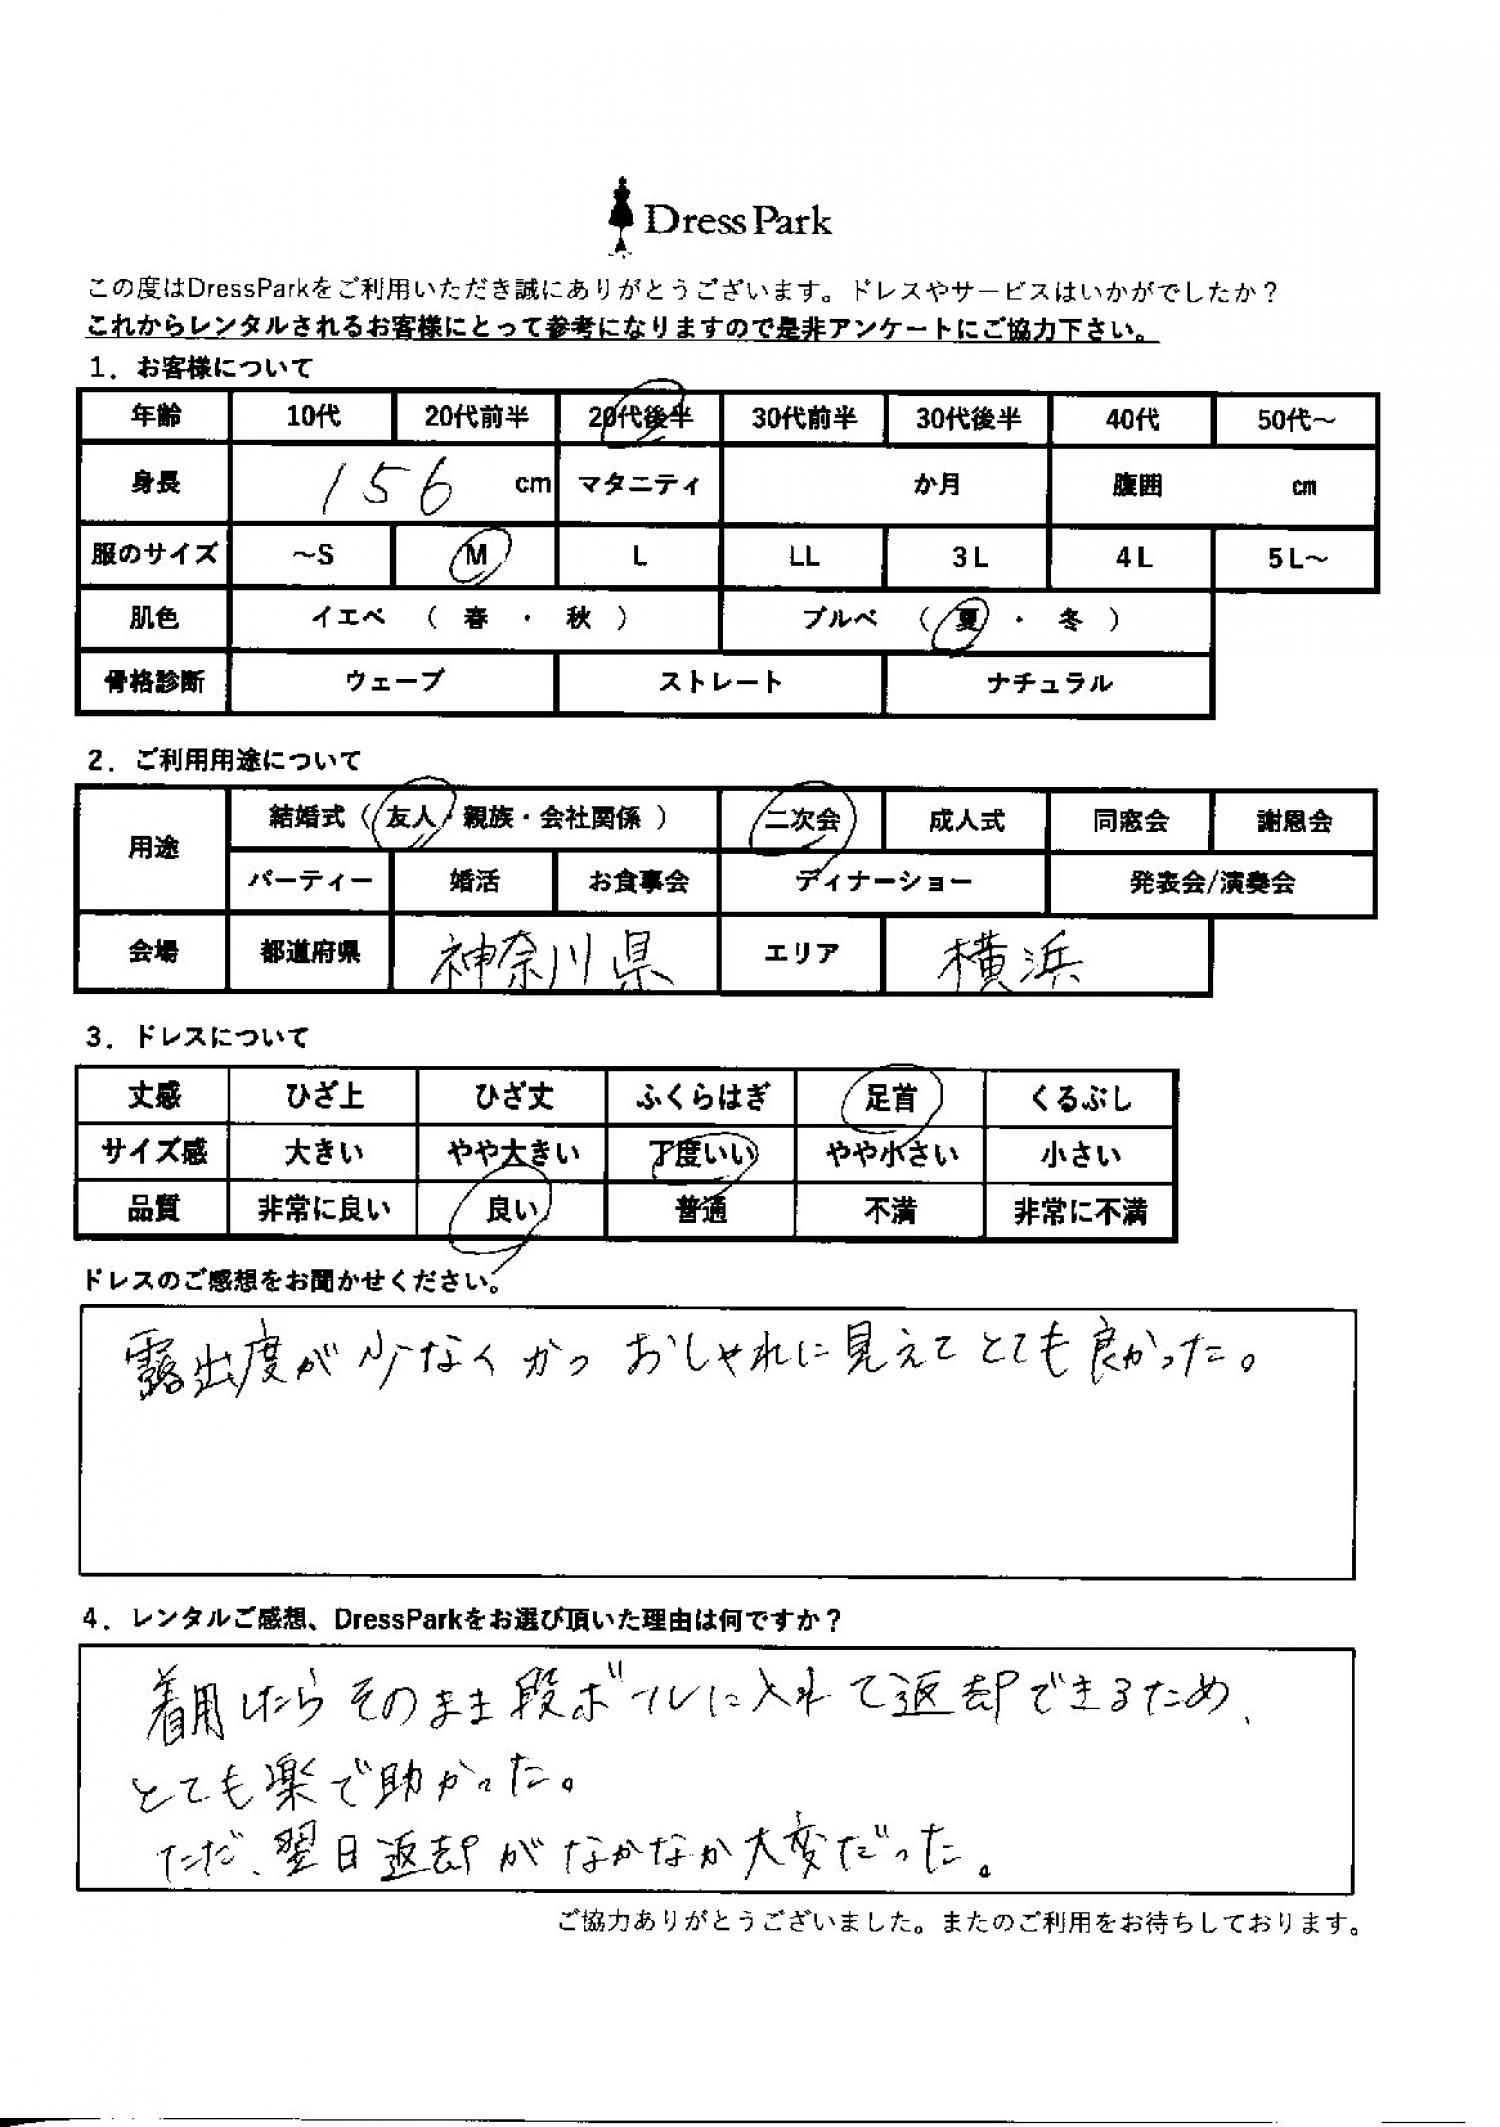 Dress Park
この度はDressParkをご利用いただき誠にありがとうございます。ドレスやサービスはいかがでしたか?
これからレンタルされるお客様にとって参考になりますので是非アンケートにご協力下さい。
1. お客様について
年齢 10代 20代前半 20代後半 30代前半 30代後半 40代 50代～
身長 156 cm マタニティ か月 腹囲 cm
服のサイズ ～S M L LL 3L 4L 5L～
肌色 イエベ ( 春 ・ 秋 ) ブルベ ( 夏 ・ 冬 )
骨格診断 ウェーブ ストレート ナチュラル
2. ご利用用途について
用途 結婚式 ( 友人・親族・会社関係 ) 二次会 成人式 同窓会 謝恩会
パーティー 婚活 お食事会 ディナーショー 発表会/演奏会
会場 都道府県 神奈川県 エリア 横浜
3. ドレスについて
丈感 ひざ上 ひざ丈 ふくらはぎ 足首 くるぶし
サイズ感 大きい やや大きい 丁度いい やや小さい 小さい
品質 非常に良い 良い 普通 不満 非常に不満
ドレスのご感想をお聞かせください。
露出度が少なくかつおしゃれに見えてとても良かった。
4. レンタルご感想、DressParkをお選び頂いた理由は何ですか?
着用したらそのまま段ボールに入れて返却できるため、
とても楽で助かった。
ただ、翌日返却がなかなか大変だった。
ご協力ありがとうございました。またのご利用をお待ちしております。